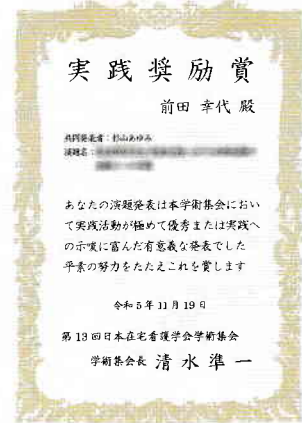 実践奨励賞
前田 幸代 殿
共同発表者：杉山あゆみ
演題名：
あなたの演題発表は本学術集会におい
て実践活動が極めて優秀または実践へ
の示唆に富んだ有意義な発表でした
平素の努力をたたえこれを賞します
令和5年11月19日
第13回日本在宅看護学会学術集会
学術集会長 清水準一